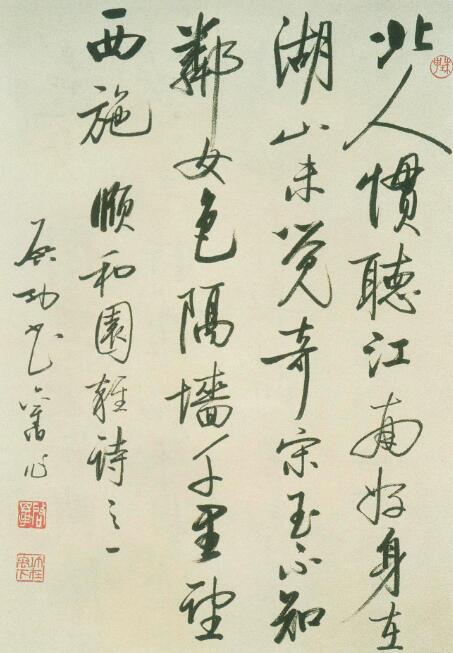 北人慣聽江南好身在
湖山未覺奇宋玉不知
鄰女色隔墻千里望
西施 頤和園雜詩之一
启功书舊作